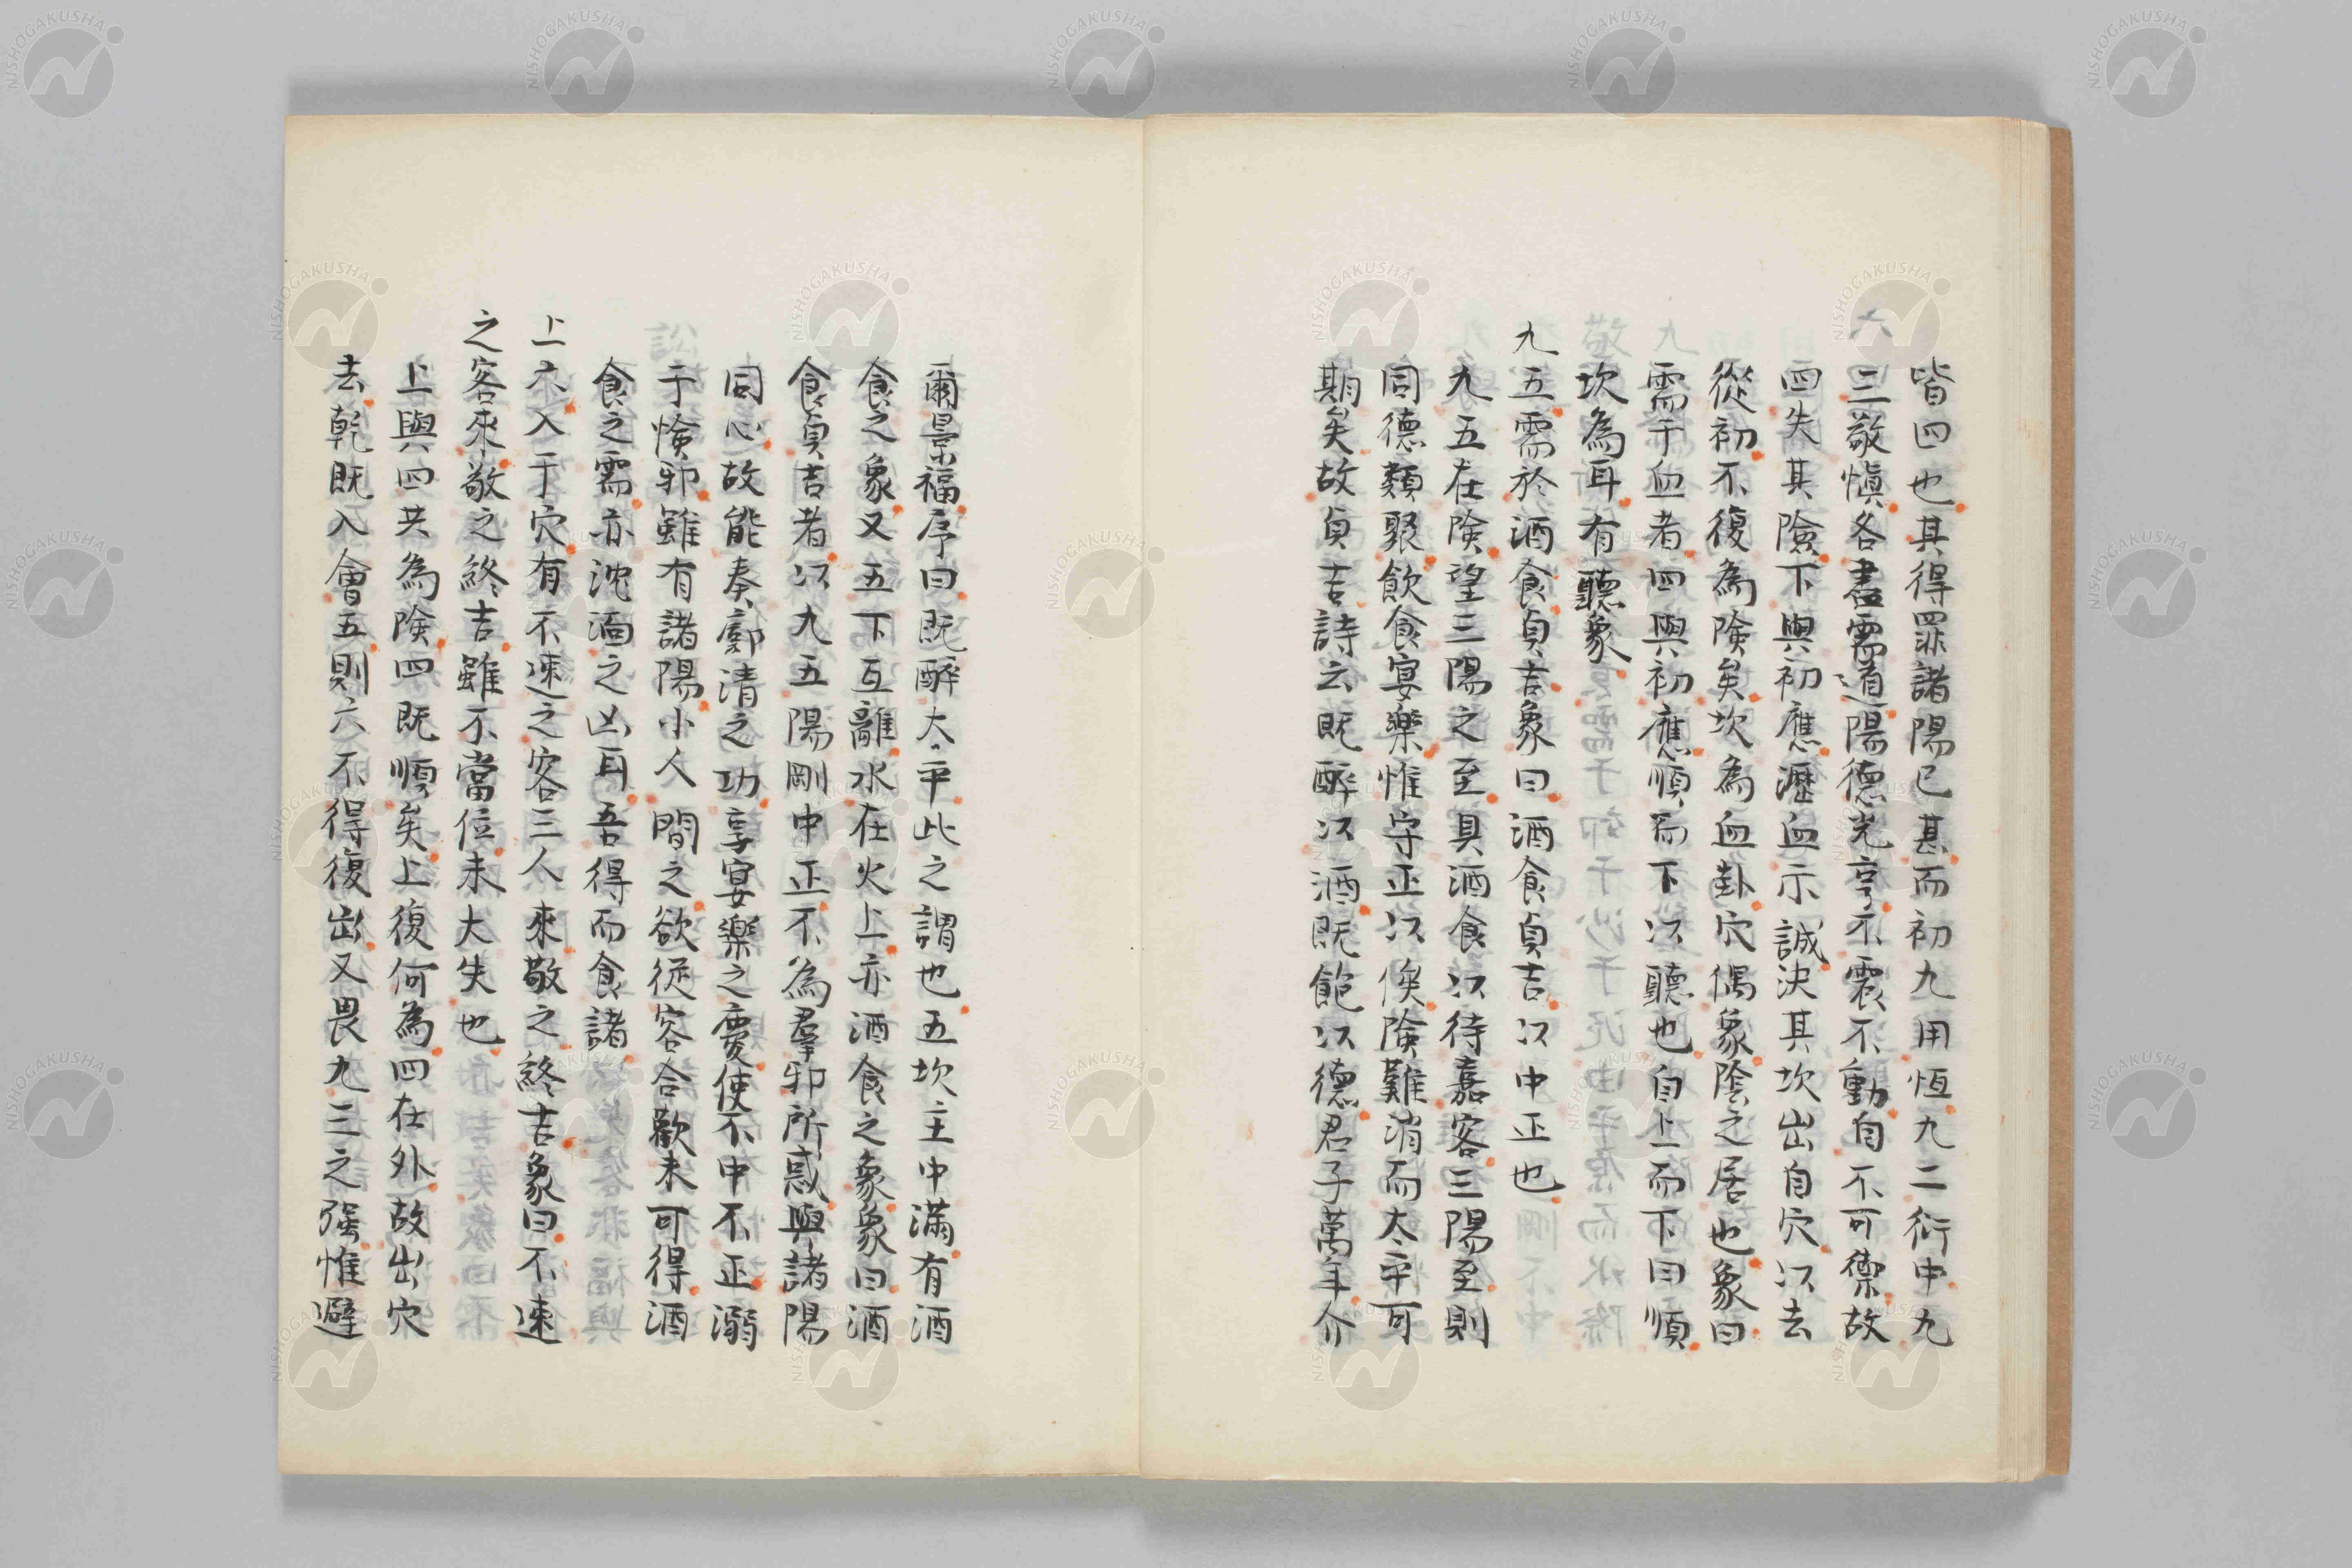 皆四也其得罪諸陽已甚而初九用恆九二衍中九
三敬愼各盡需道陽德光亨不震不動自不可禦故
四失其險下與初應瀝血示誠決其坎出自穴以去
從初不復為險矣坎為血卦穴偶象陰之居也象曰
需于血者四與初應順而下以聽也自上而下曰順
坎為耳有聽象
九五需於酒食貞吉象曰酒食貞吉以中正也
九五在險望三陽之至具酒食以待嘉客三陽至則
同德類聚飲食宴樂惟守正以俟險難消而太平可
期矣故貞吉詩云既醉以酒既飽以德君子萬年介
爾景福序曰既醉大平此之謂也五坎主中滿有酒
食之象又五下互離水在火上亦酒食之象象曰酒
食貞吉者以九五陽剛中正不為羣邪所惑與諸陽
同心故能奏廓清之功享宴樂之慶使不中不正溺
于憸邪雖有諸陽小人間之欲從容合歡未可得酒
食之需亦沈湎之凶耳吾得而食諸
上六入于穴有不速之客三人來敬之終吉象曰不速
之客來敬之終吉雖不當位未大失也
上與四共為險四既順矣上復何為四在外故出穴
去乾既入會五則六不得復出又畏九三之强惟避
NISHOGAKUSHA